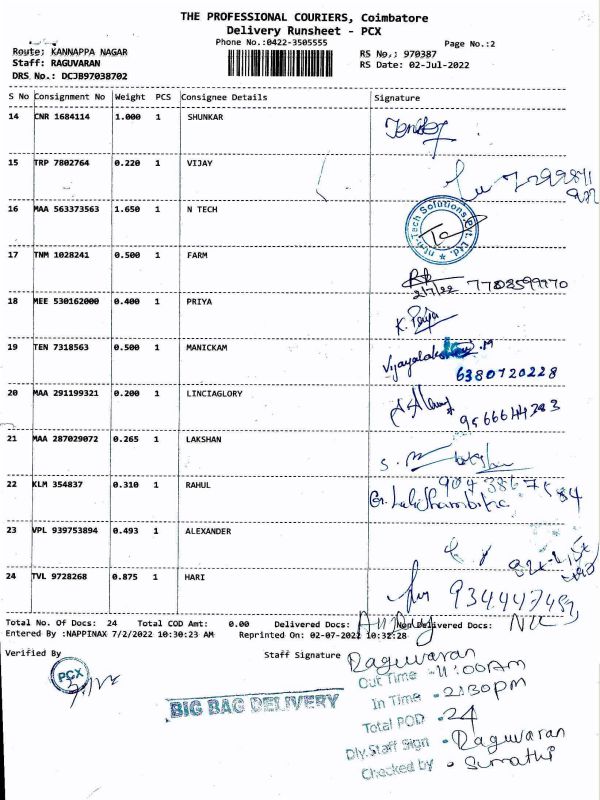 THE PROFESSIONAL COURIERS, Coimbatore
Delivery Runsheet - PCX
Phone No.:0422-3505555
Page No.:2
Route; KANNAPPA NAGAR
Staff: RAGUVARAN
DRS No.: DCJB97038702
RS No.; 970387
RS Date: 02-Jul-2022
S No Consignment No Weight PCS Consignee Details Signature
14 CNR 1684114 1.000 1 SHUNKAR
15 TRP 7802764 0.220 1 VIJAY
16 MAA 563373563 1.650 1 N TECH
17 TNM 1028241 0.500 1 FARM
2/7/22 7708599770
18 MEE 530162000 0.400 1 PRIYA
K. Priya
19 TEN 7318563 0.500 1 MANICKAM
6380720228
20 MAA 291199321 0.200 1 LINCIAGLORY
21 MAA 287029072 0.265 1 LAKSHAN
22 KLM 354837 0.310 1 RAHUL
23 VPL 939753894 0.493 1 ALEXANDER
24 TVL 9728268 0.875 1 HARI
Total No. Of Docs: 24 Total COD Amt: 0.00 Delivered Docs: Delivered Docs: Nil
Entered By :NAPPINAX 7/2/2022 10:30:23 AM Reprinted On: 02-07-2022 10:32:28
Verified By
Staff Signature Raguvaran
PCX
BIG BAG DELIVERY
Out Time - 11:00AM
In Time - 2:30pm
Total POD - 24
Dly.Staff Sign - Raguvaran
Checked by - Sumathi